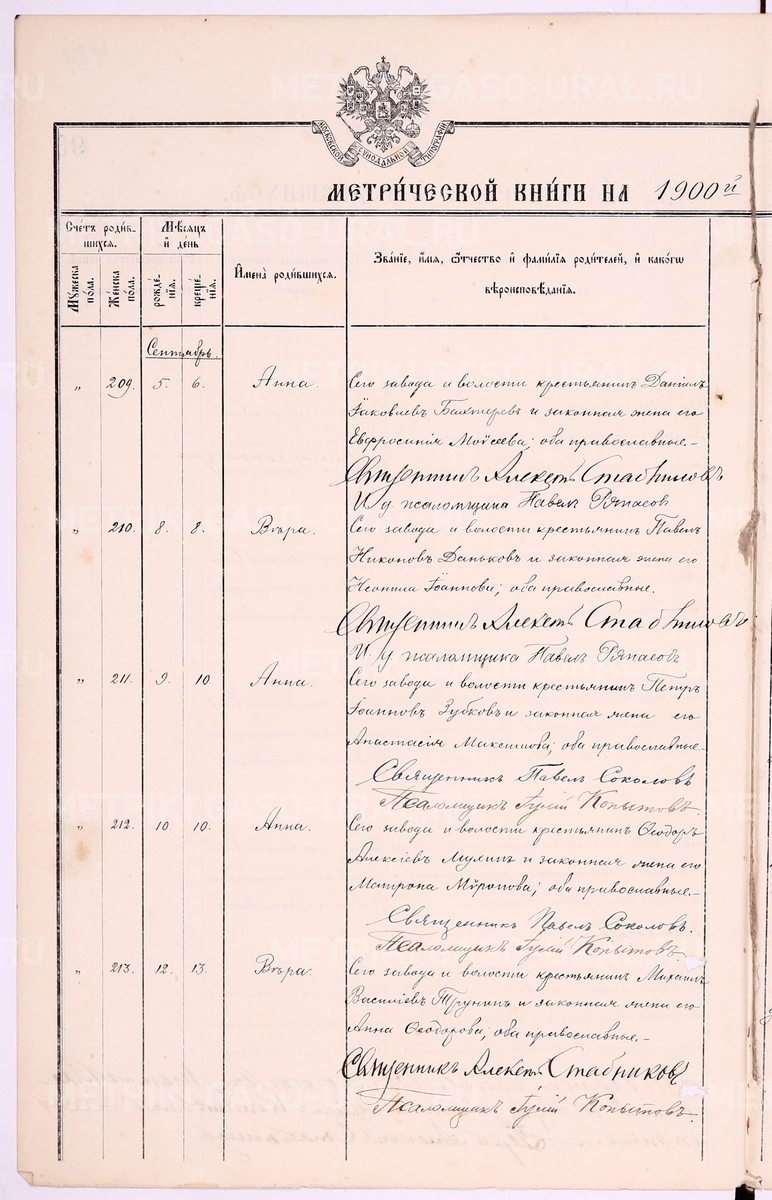 METRICS.GASO-URAL.RU
МОСКОВСКОЙ СѴНОДАЛЬНОЙ ТИПОГРАФІИ
МЕТРИ́ЧЕСКОЙ КНИ́ГИ НА 1900й
Сче́тъ роди́в- шихся. Мѣсяцъ и҆ де́нь И҆мена̀ роди́вшихся. Зва́нїе, и҆́мя, ѻ҆́тчество и҆ фами́лїя роди́телей, и҆ како́гѡ
вѣроисповѣ́данїя.
Му́жеска по́ла. Же́нска по́ла. рожде́- нїя. креще́- нїя.
Сентябрь.
„ 209. 5. 6. Анна. Сего завода и волости крестьянинъ Даніилъ
Іаковлевъ Бахтеревъ и законная жена его
Евфросинія Моѵсеева; оба православные.-
Священникъ Алексѣй Стабниковъ
И д псаломщика Павелъ Ряпасов
„ 210. 8. 8. Вѣра. Сего завода и волости крестьянинъ Павелъ
Никоновъ Даньковъ и законная жена его
Неонила Іоаннова; оба православные.
Священникъ Алексѣй Стабниковъ
И д псаломщика Павелъ Ряпасовъ
„ 211. 9. 10 Анна. Сего завода и волости крестьянинъ Петръ
Іоанновъ Зубковъ и законная жена его
Анастасія Максимова; оба православные.-
Священникъ Павелъ Соколовъ
Псаломщикъ Іулій Копытовъ.
„ 212. 10. 10. Анна. Сего завода и волости крестьянинъ Ѳеодоръ
Алексіевъ и законная жена его
Матрона Мѵронова; оба православные.-
Священникъ Павелъ Соколовъ.
Псаломщикъ Іулій Копытовъ.
„ 213. 12. 13. Вѣра. Сего завода и волости крестьянинъ Михаилъ
Василіевъ Трунинъ и законная жена его
Анна Ѳеодорова; оба православные.-
Священникъ Алексѣй Стабниковъ
Псаломщикъ Іулій Копытовъ.